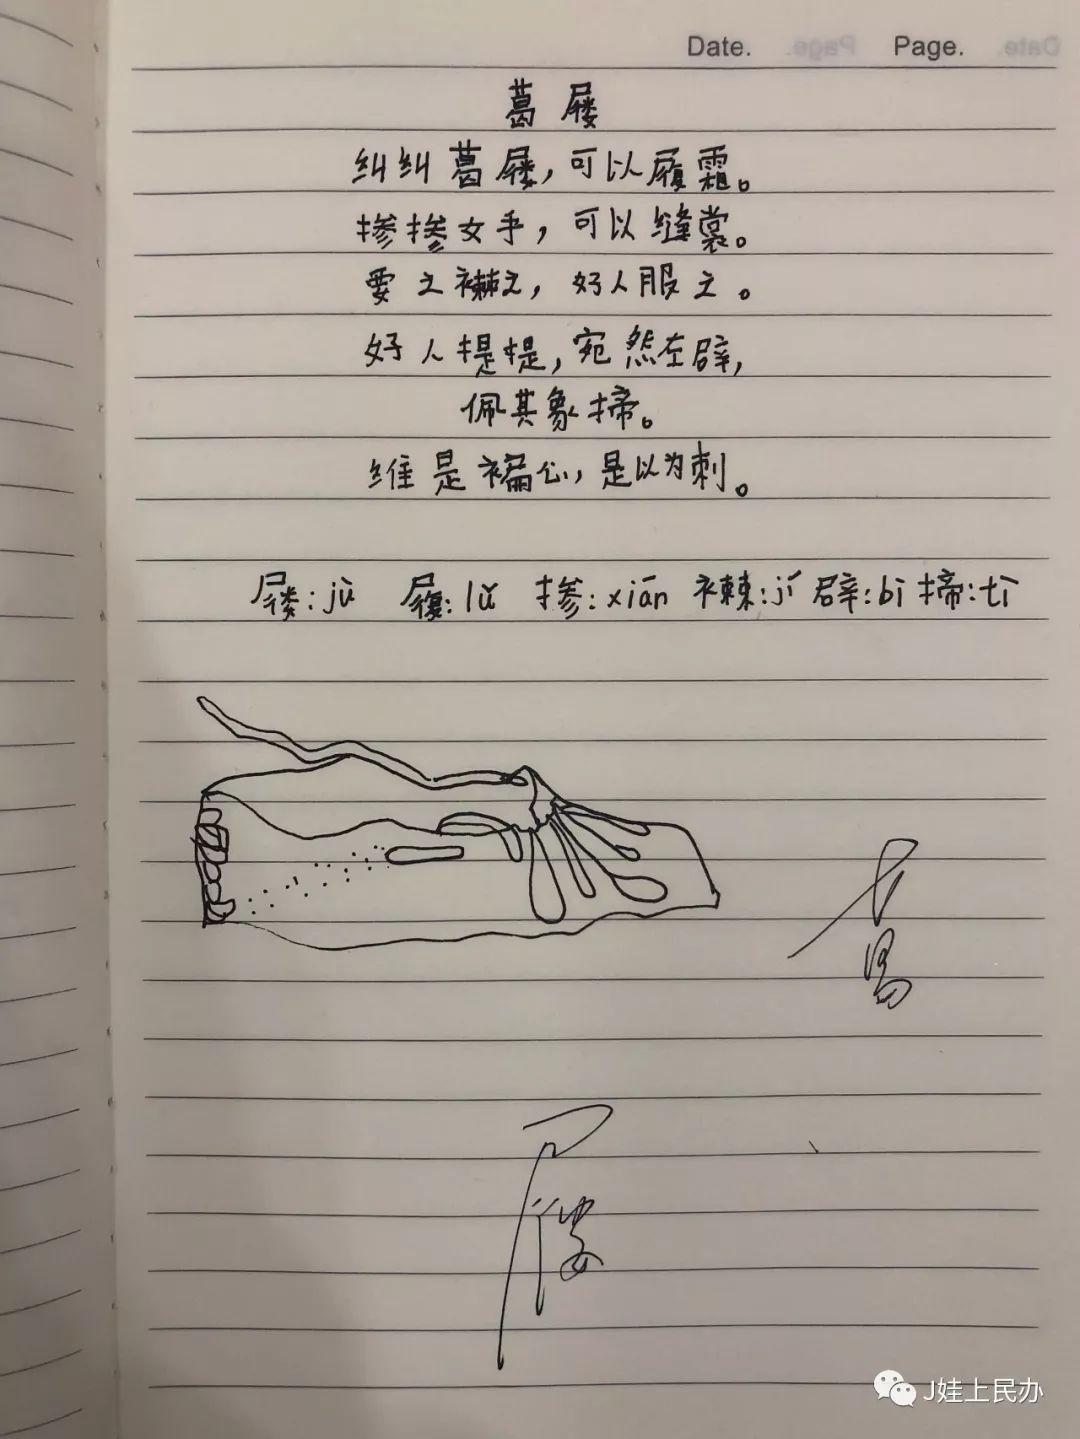 Date. Page.
葛屦
纠纠葛屦,可以履霜。
掺掺女手,可以缝裳。
要之襋之,好人服之。
好人提提,宛然左辟,
佩其象揥。
维是褊心,是以为刺。
屦:jù 履:lǚ 掺:xiān 襋:jí 辟:bì 揥:tì
葛
屦
J娃上民办